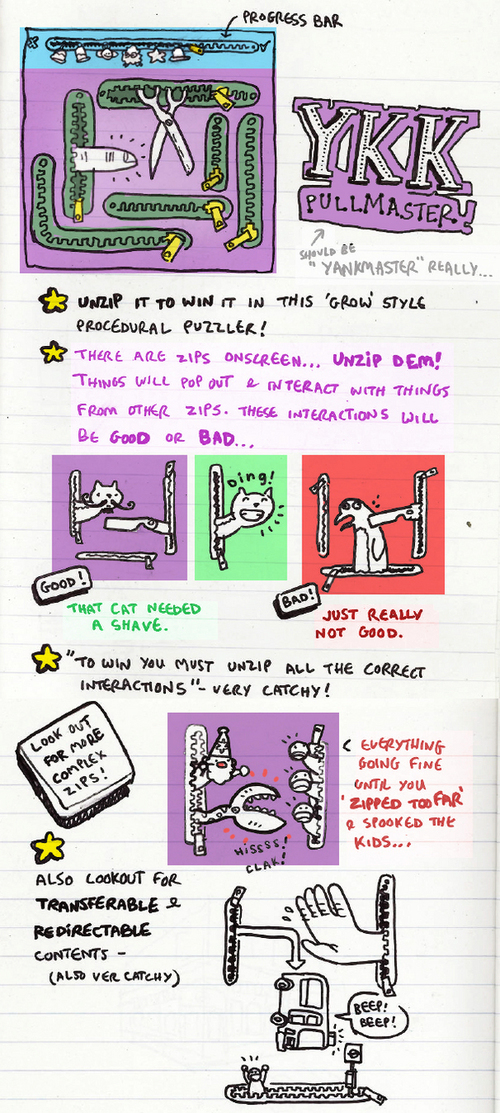 PROGRESS BAR
X
YKK
PULLMASTER!
SHOULD BE
"YANKMASTER" REALLY...
UNZIP IT TO WIN IT IN THIS 'GROW' STYLE
PROCEDURAL PUZZLER!
THERE ARE ZIPS ONSCREEN... UNZIP DEM!
THINGS WILL POP OUT & INTERACT WITH THINGS
FROM OTHER ZIPS. THESE INTERACTIONS WILL
BE GOOD OR BAD...
Ding!
GOOD!
THAT CAT NEEDED
A SHAVE.
BAD!
JUST REALLY
NOT GOOD.
"TO WIN YOU MUST UNZIP ALL THE CORRECT
INTERACTIONS" - VERY CATCHY!
LOOK OUT
FOR MORE
COMPLEX
ZIPS!
HISSSS!
CLAK!
< EVERYTHING
GOING FINE
UNTIL YOU
'ZIPPED TOO FAR'
& SPOOKED THE
KIDS...
ALSO LOOKOUT FOR
TRANSFERABLE &
REDIRECTABLE
CONTENTS -
(ALSO VER CATCHY)
BEEP!
BEEP!